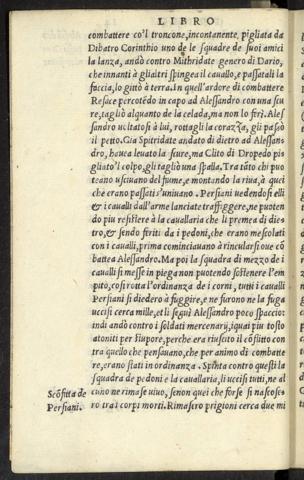 LIBRO
combattere co'l troncone, incontanente, pigliata da
Dibatro Corinthio uno de le squadre de suoi amici
la lanza, andò contro Mithridate genero di Dario,
che innanti à gli altri spingea il cauallo, e passatali la
faccia, lo gittò à terra. In quell'ardore di combattere
Resace percotēdo in capo ad Alessandro con una scu
re, tagliò alquanto de la celada, ma non lo ferì. Ales
sandro uoltatosi à lui, rottagli la corazza, gli passò
il petto. Gia Spitridate andato di dietro ad Alessan
dro, hauea leuato la scure, ma Clito di Dropedo pis
gliato'l colpo, gli tagliò una spalla. Tra tāto chi puo
teano usciuano del fiume, e montando la riua, à quei
che erano passati s'uniuano. Persiani uedendosi elli
& i caualli dall'arme lanciate trafiggere, ne puoten
do piu resistere à la cauallaria che li premea di dies
tro, & sendo feriti da i pedoni, che erano mescolati
con i caualli, prima cominciauano à rinculsi oue cō
battea Alessandro. Ma poi la squadra di mezzo de i
caualli si messe in piega non puotendo sostenere l'em
pito, così rotta l'ordinanza de i corni, tutti i caualli
Persiani si diedero à fuggire, e ne furono ne la fuga
uccisi cerca mille, et li seguì Alessandro poco spaccio:
indi andò contro i soldati mercenarij, iquai piu tosto
atoniti per stupore, perche era riuscito il cōflitto con
tra quello che pensauano, che per animo di combatte
re, erano stati in ordinanza. Spinta contro questi la
squadra de pedoni e la cauallaria, li uccisi tutti, ne al
cuno ne rimase uiuo, senon quei che forse si nascoses
ro tra i corpi morti. Rimasero prigioni cerca due mi
Scōfitta de
Persiani.